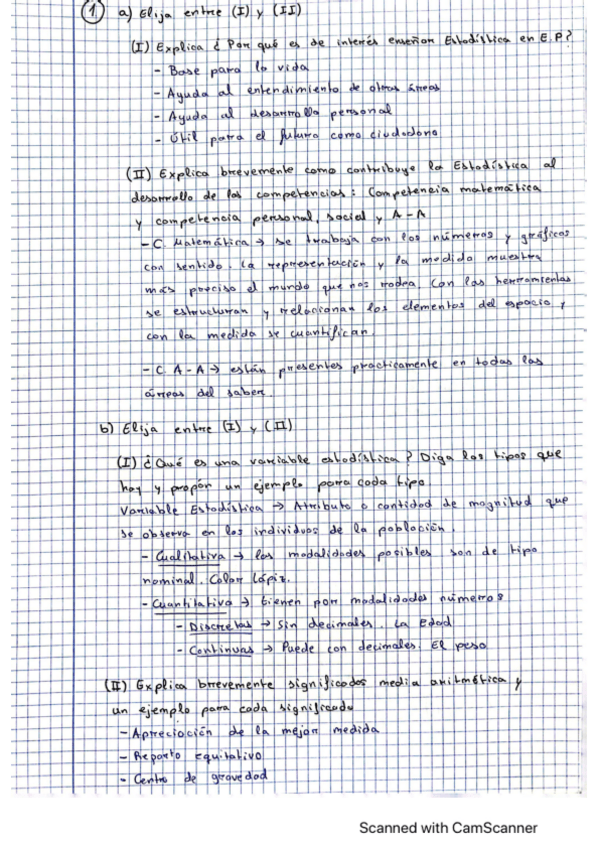 1 a) Elija entre (I) y (II)
(I) Explica ¿Por qué es de interés enseñar Estadística en E.P?
- Base para la vida
- Ayuda al entendimiento de otras áreas
- Ayuda al desarrollo personal
- Útil para el futuro como ciudadano
(II) Explica brevemente como contribuye la Estadística al
desarrollo de las competencias: Competencia matemática
y competencia personal, social y A-A
- C. Matemática → se trabaja con los números y gráficos
con sentido. La representación y la medida muestra
más preciso el mundo que nos rodea. Con las herramientas
se estructuran y relacionan los elementos del espacio y
con la medida se cuantifican.
- C. A-A → están presentes practicamente en todas las
áreas del saber.
b) Elija entre (I) y (II)
(I) ¿Qué es una variable estadística? Diga los tipos que
hay y propón un ejemplo para cada tipo
Variable Estadística → Atributo o cantidad de magnitud que
se observa en los individuos de la población.
- Cualitativa → las modalidades posibles son de tipo
nominal. Color lápiz.
- Cuantitativa → tienen por modalidades números
- Discretas → Sin decimales. La Edad
- Continuas → Puede con decimales. El peso
(II) Explica brevemente significados media aritmética y
un ejemplo para cada significado
- Apreciación de la mejor medida
- Reparto equitativo
- Centro de gravedad
Scanned with CamScanner